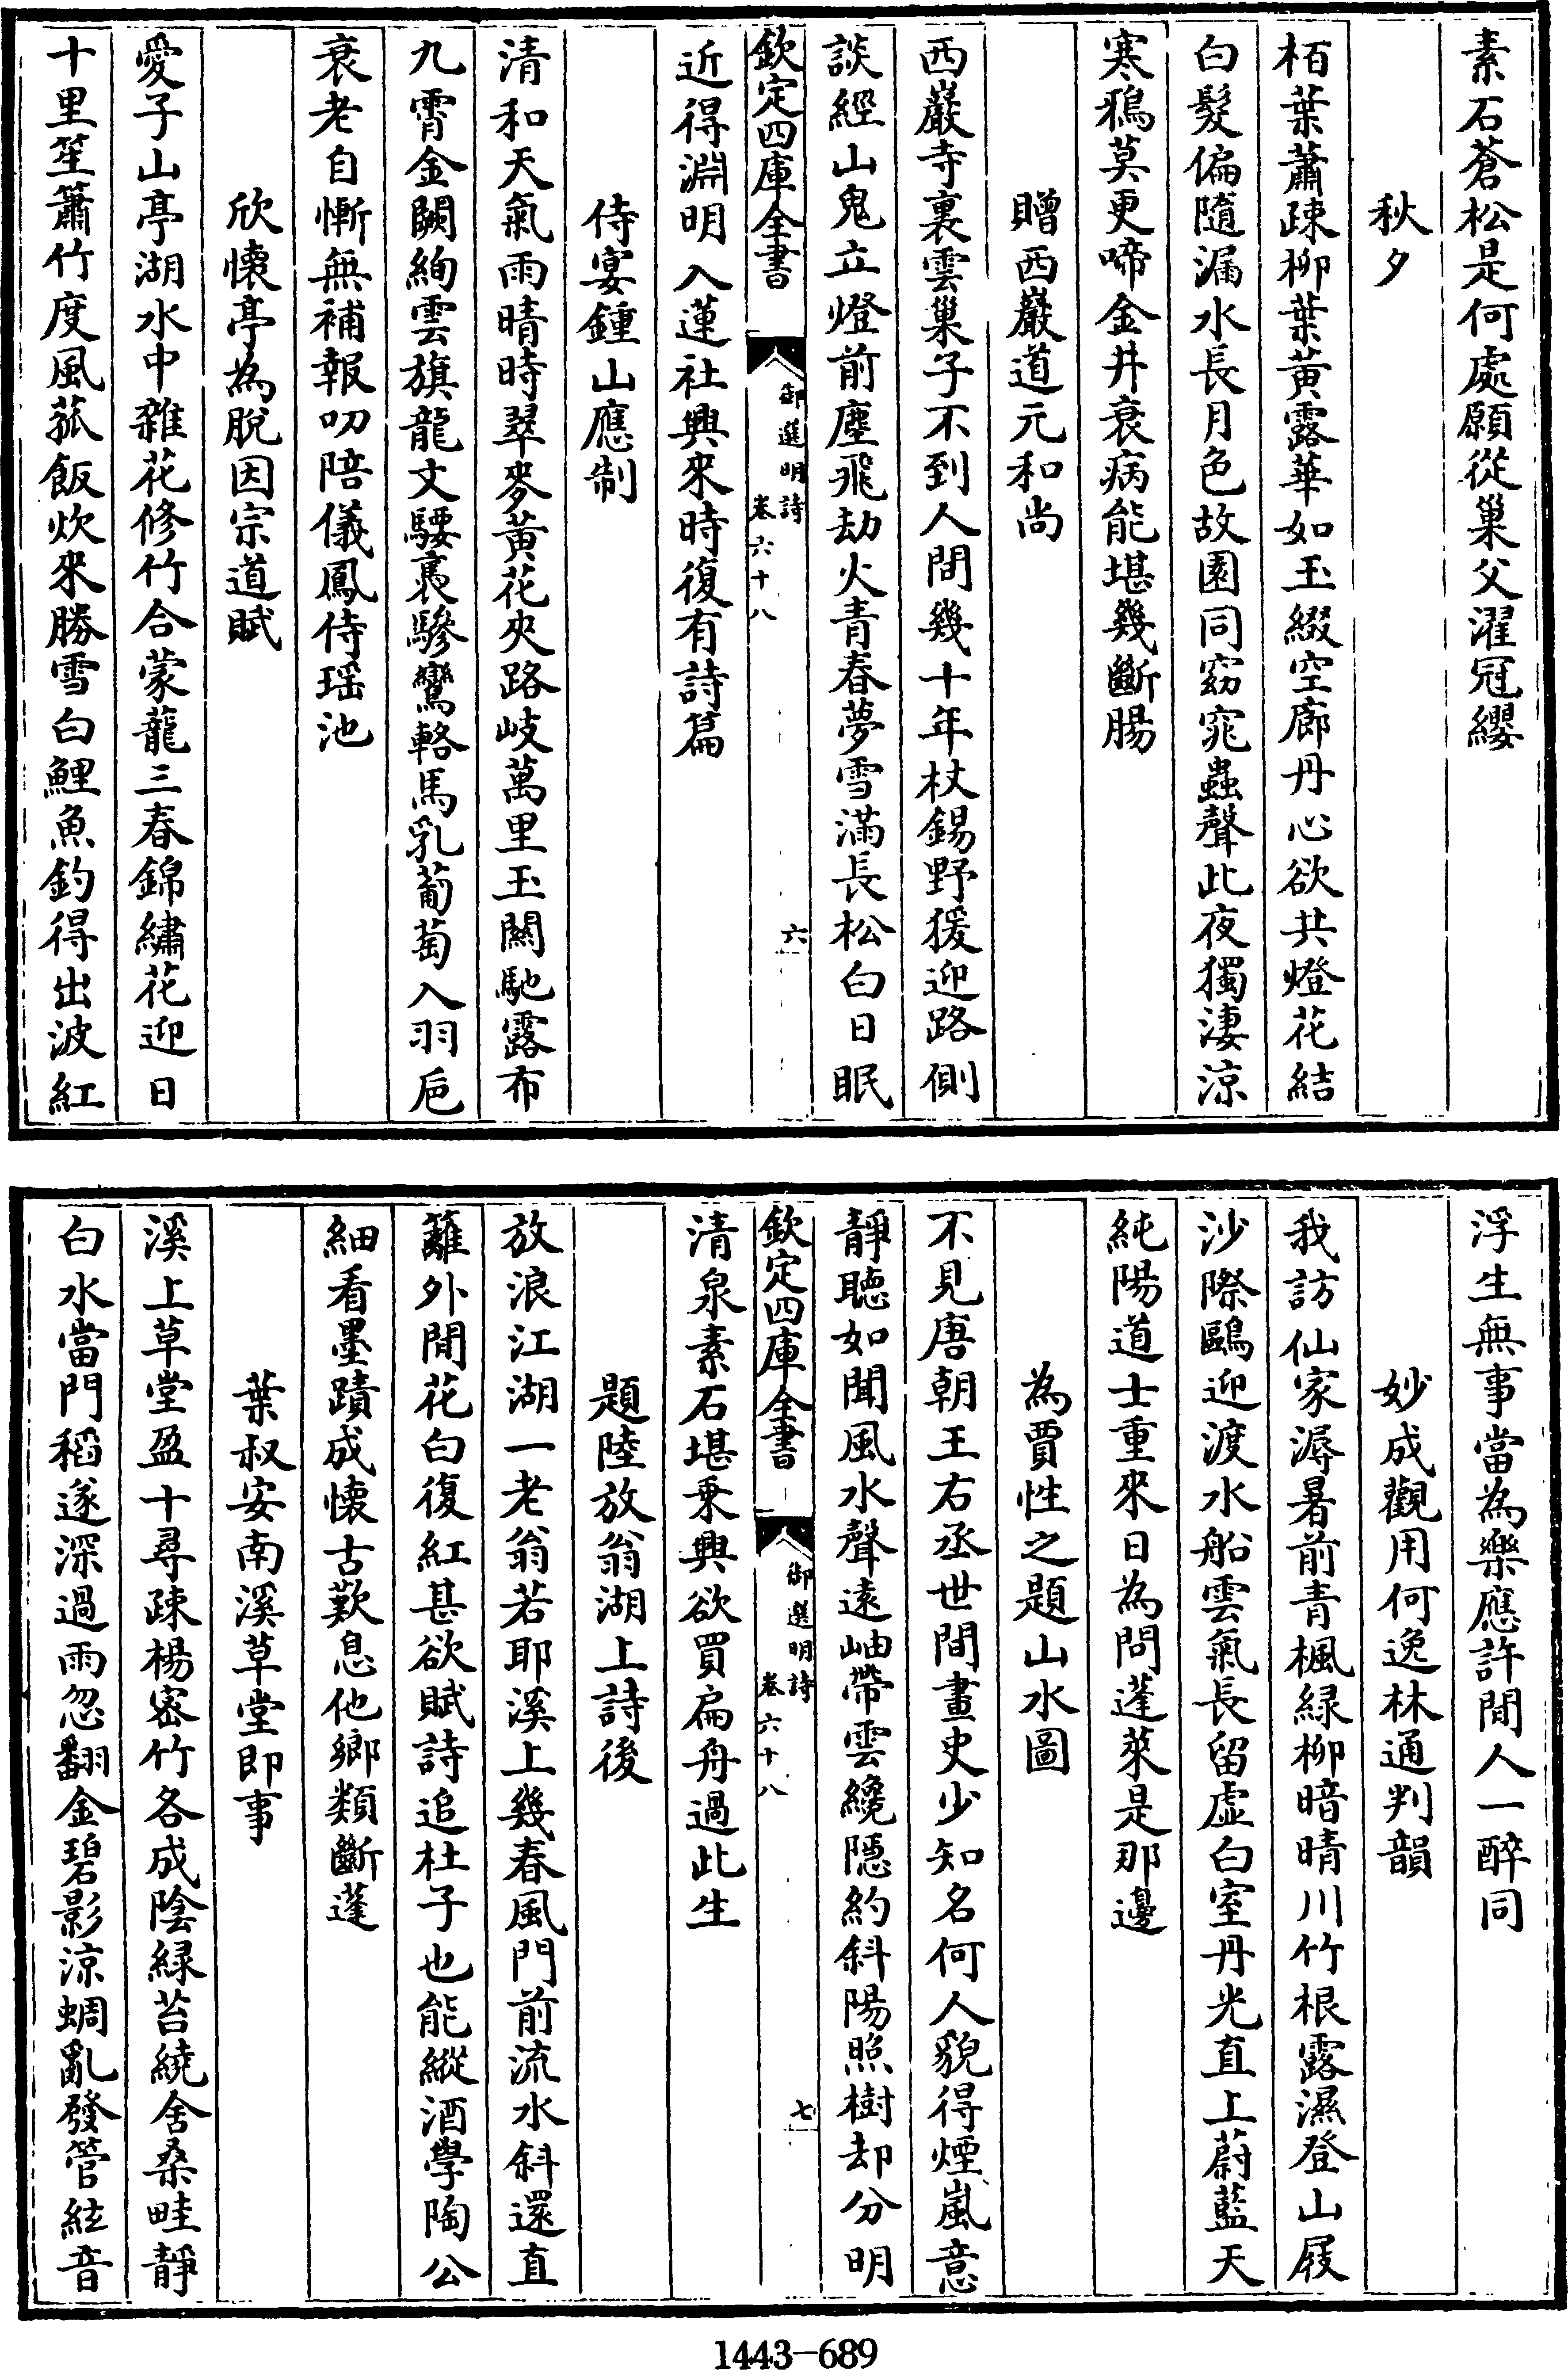 素石蒼松是何處願從巢父濯冠纓
秋夕
栢葉蕭疎柳葉黃露華如玉綴空廊丹心欲共燈花結
白髮偏隨漏水長月色故園同窈窕蟲聲此夜獨淒涼
寒鴉莫更啼金井衰病能堪幾斷腸
贈西巖道元和尚
西巖寺裏雲巢子不到人間幾十年杖錫野猨迎路側
談經山鬼立燈前塵飛劫火青春夢雪滿長松白日眠
欽定四庫全書
御選明詩
卷六十八
六
近得淵明入蓮社興來時復有詩篇
侍宴鍾山應制
清和天氣雨晴時翠麥黃花夾路岐萬里玉關馳露布
九霄金闕絢雲旗龍文騕褭驂鸞輅馬乳葡萄入羽巵
衰老自慚無補報叨陪儀鳳侍瑶池
欣懷亭為脫因宗道賦
愛子山亭湖水中雜花修竹合蒙蘢三春錦繡花迎日
十里笙簫竹度風菰飯炊來勝雪白鯉魚釣得出波紅
浮生無事當為樂應許閒人一醉同
妙成觀用何逸林通判韻
我訪仙家溽暑前青楓緑柳暗晴川竹根露濕登山屐
沙際鷗迎渡水船雲氣長留虛白室丹光直上蔚藍天
純陽道士重來日為問蓬萊是那邊
為賈性之題山水圖
不見唐朝王右丞世間畫史少知名何人貌得煙嵐意
靜聽如聞風水聲遠岫帶雲纔隱約斜陽照樹却分明
欽定四庫全書
御選明詩
卷六十八
七
清泉素石堪乗興欲買扁舟過此生
題陸放翁湖上詩後
放浪江湖一老翁若耶溪上幾春風門前流水斜還直
蘺外閒花白復紅甚欲賦詩追杜子也能縱酒學陶公
細看墨蹟成懷古歎息他鄉類斷蓬
葉叔安南溪草堂即事
溪上草堂盈十尋疎楊宻竹各成陰緑苔繞舍桑畦靜
白水當門稻遂深過雨忽翻金碧影涼蜩亂發管絃音
1443-689